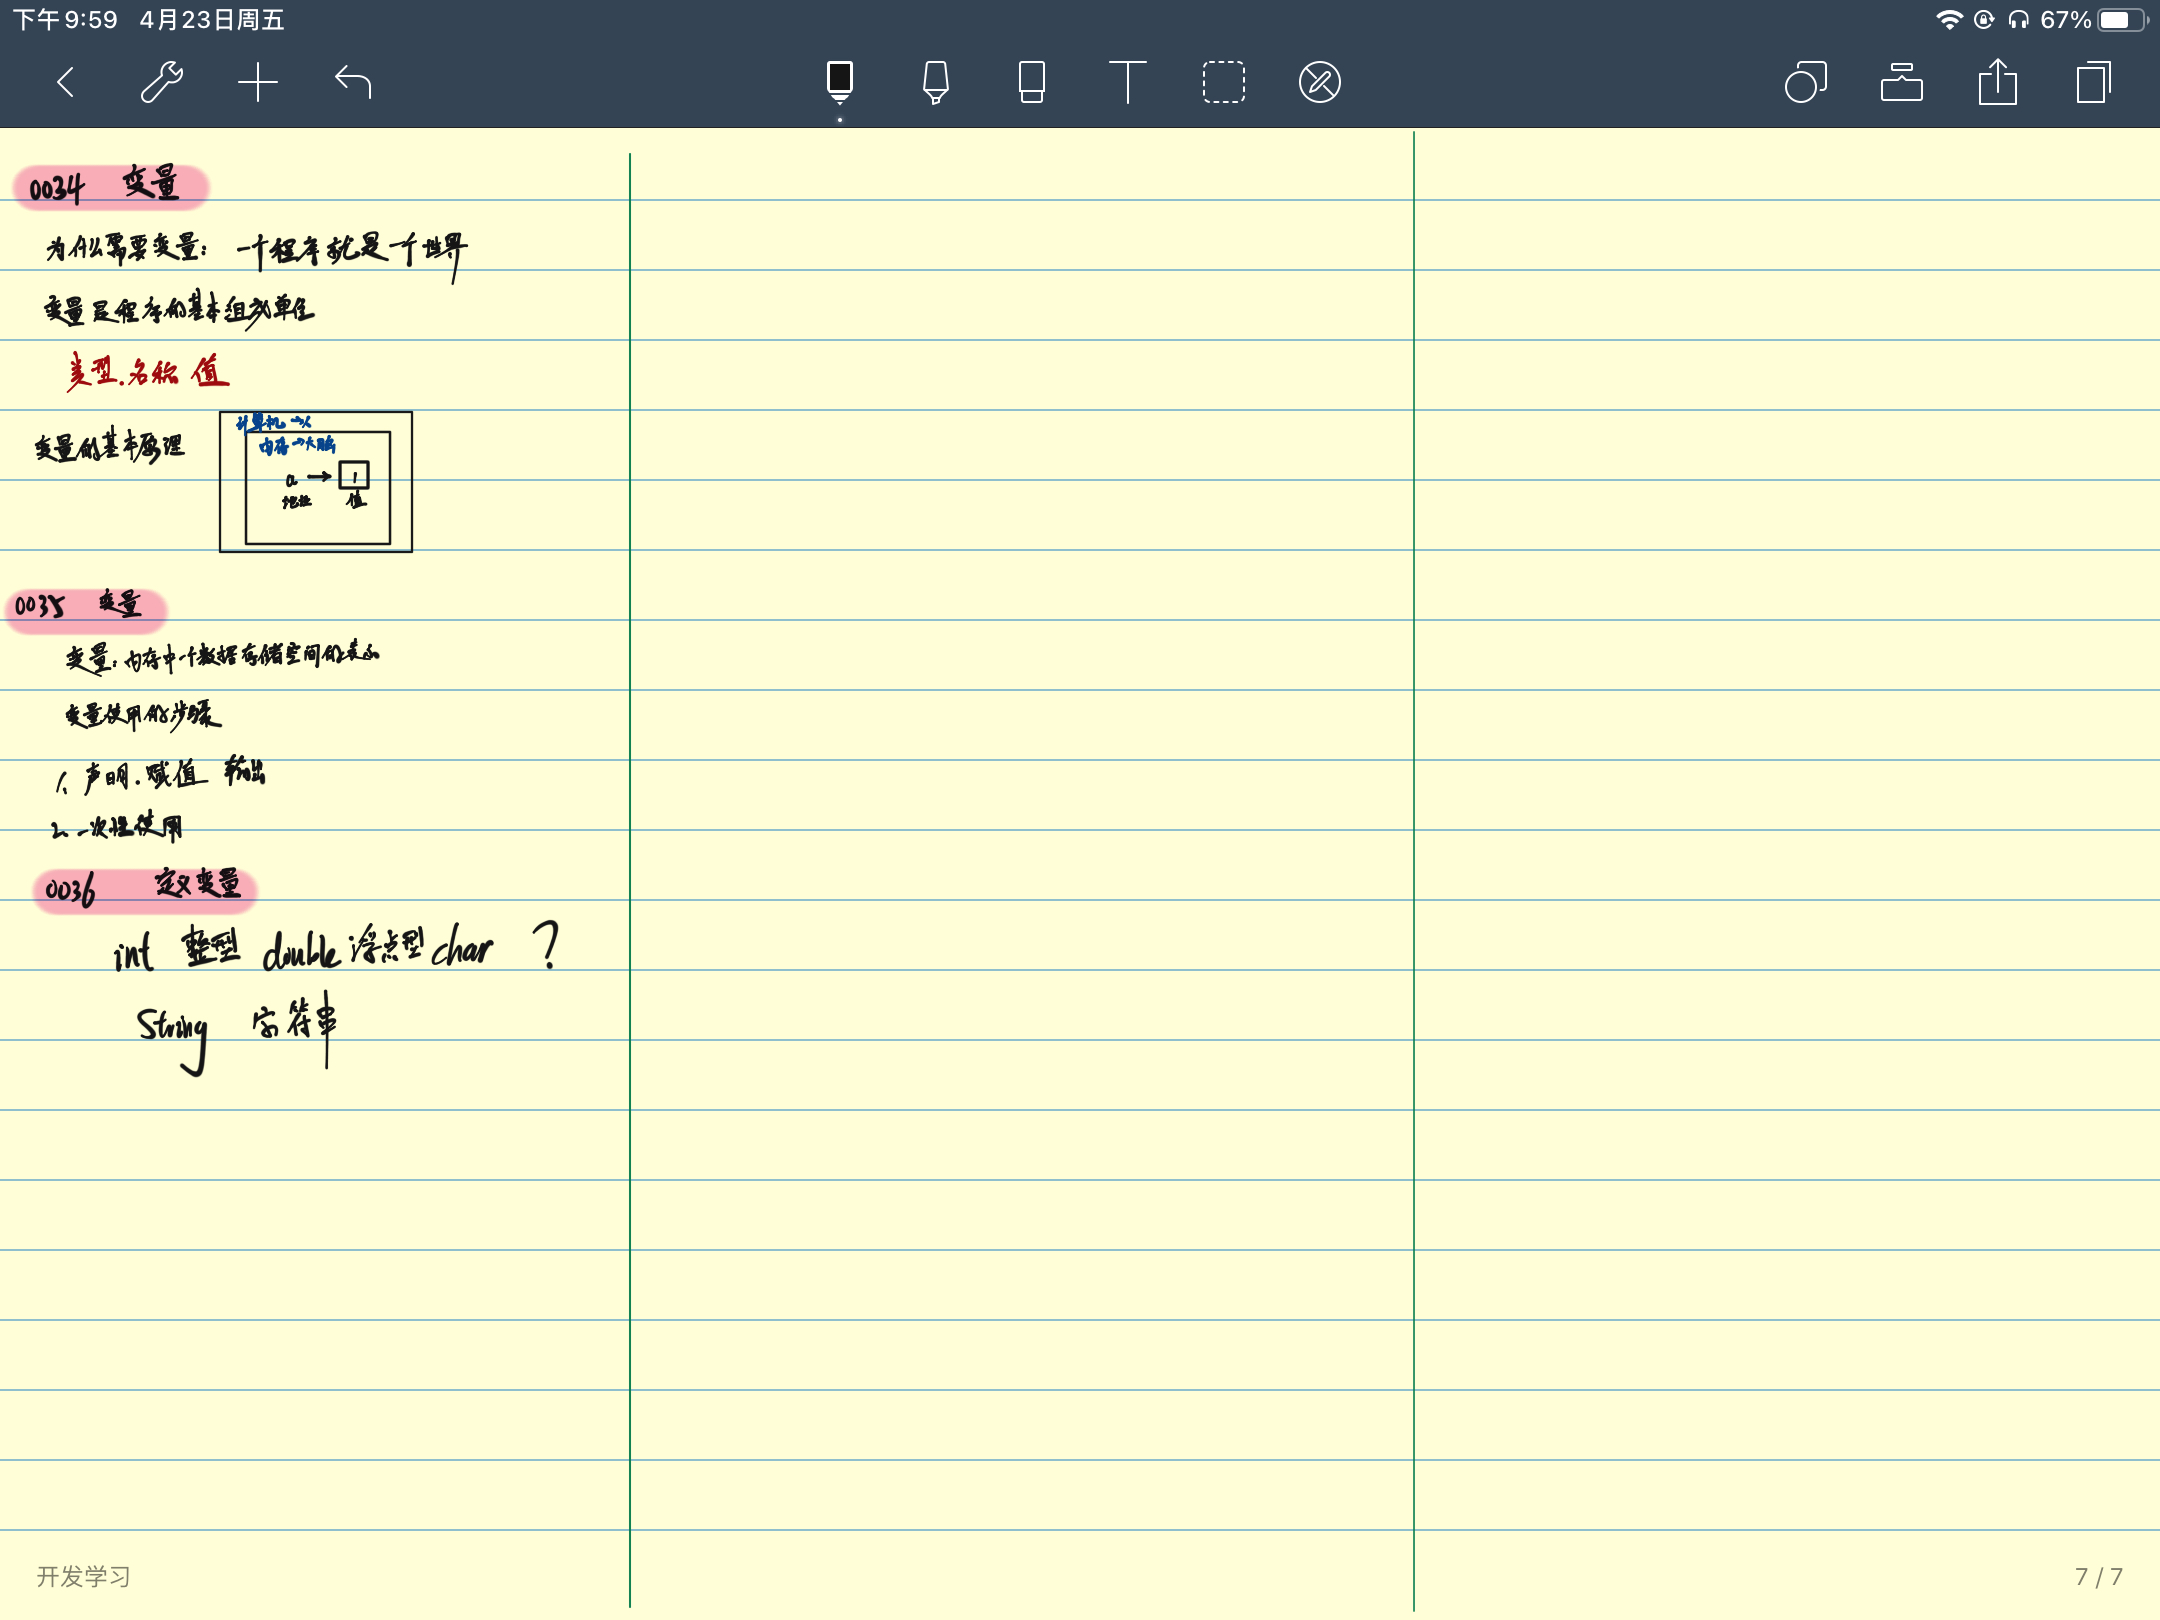 下午9:59 4月23日周五
67%
0034 变量
为什么需要变量: 一个程序就是一个世界
变量是程序的基本组成单位
类型.名称 值
变量的基本原理
计算机→人
内存→大脑
a → 1
地址 值
0035 变量
变量: 内存中一个数据存储空间的表示
变量使用的步骤
1、声明.赋值 输出
2、一次性使用
0036 定义变量
int 整型 double 浮点型 char ?
String 字符串
开发学习
7 / 7